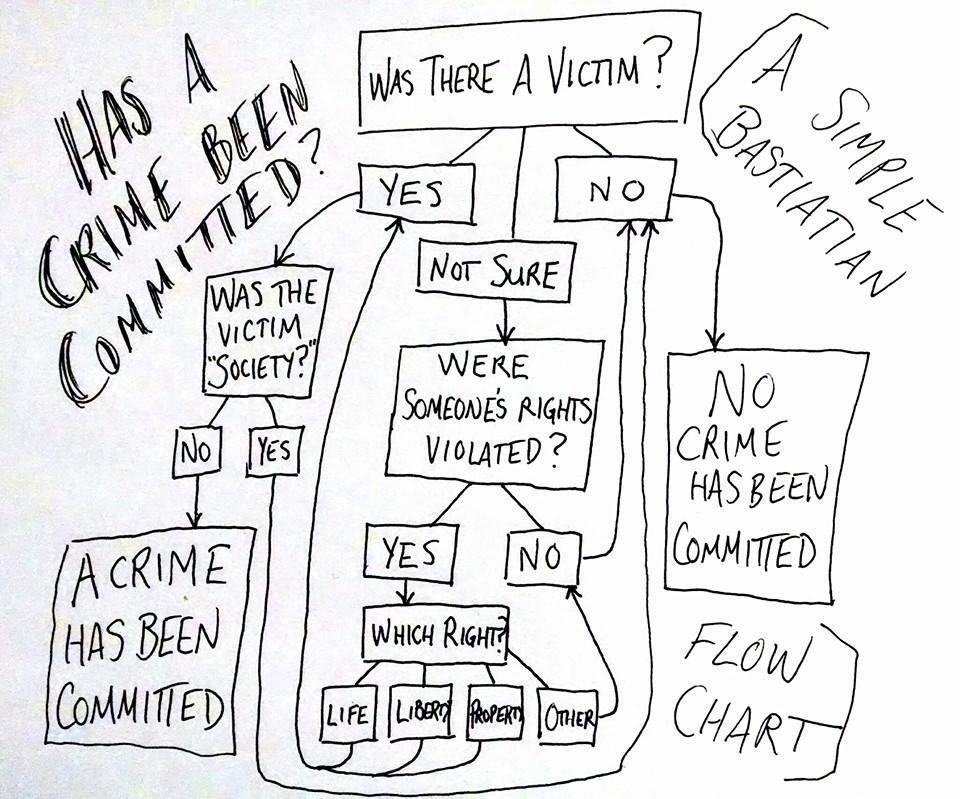 HAS A
CRIME BEEN
COMMITTED?
A SIMPLE
BASTIATIAN
WAS THERE A VICTIM?
YES
NO
NOT SURE
WAS THE
VICTIM
"SOCIETY?"
NO
YES
WERE
SOMEONE'S RIGHTS
VIOLATED?
YES
NO
WHICH RIGHT?
LIFE
LIBERTY
PROPERTY
OTHER
A CRIME
HAS BEEN
COMMITTED
NO
CRIME
HAS BEEN
COMMITTED
FLOW
CHART